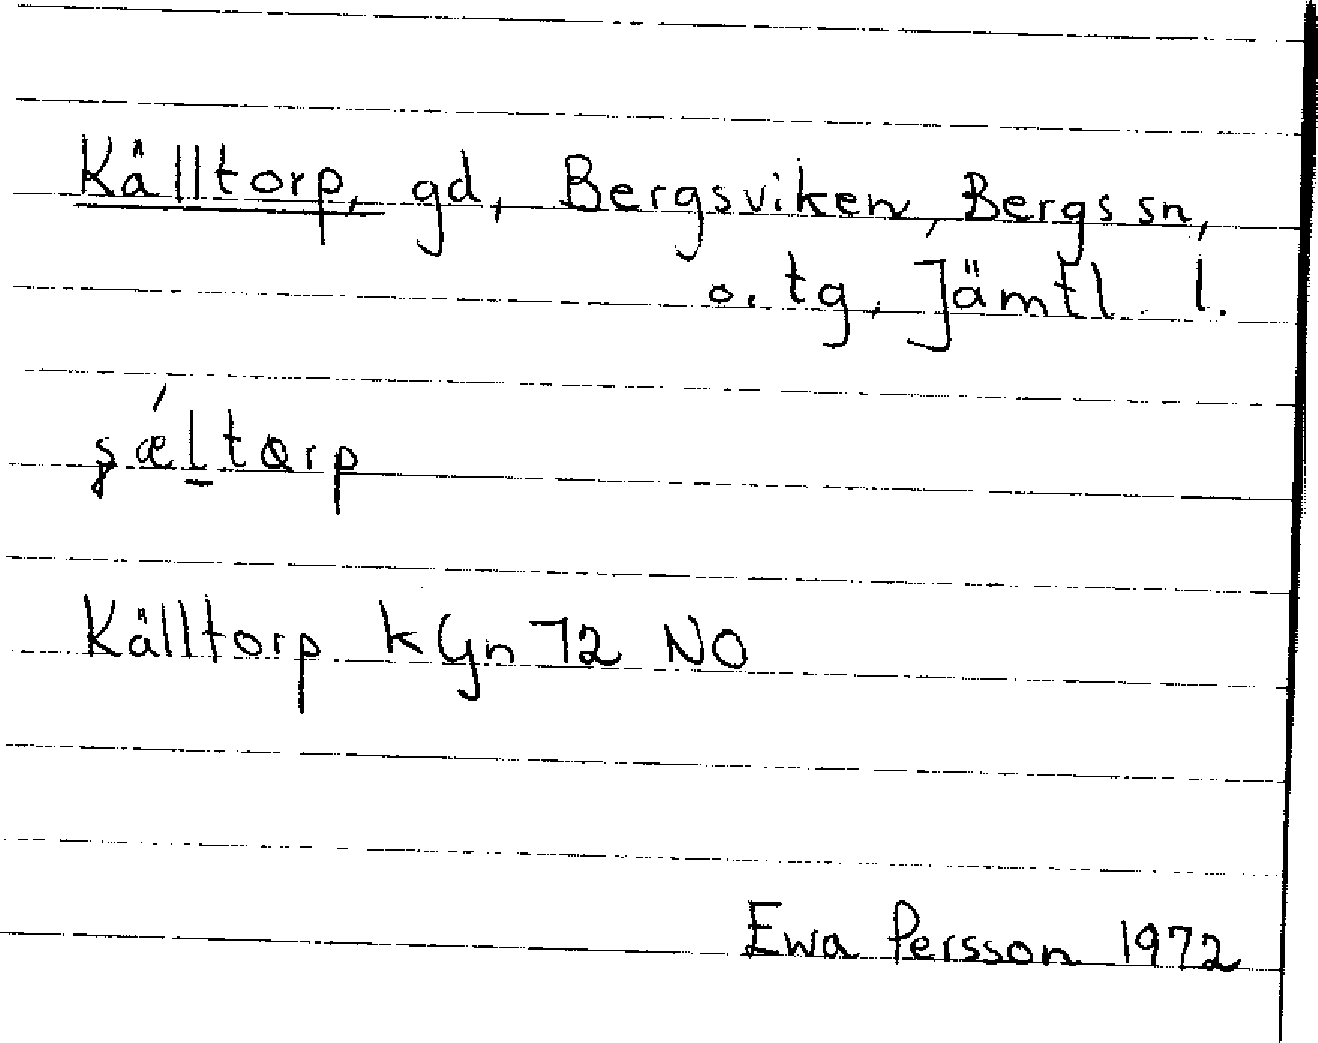 Källtorp, gd, Bergsviken, Bergs sn,
o. tg, Jämtl. l.
Källtorp kGn 72 NO
Ewa Persson 1972